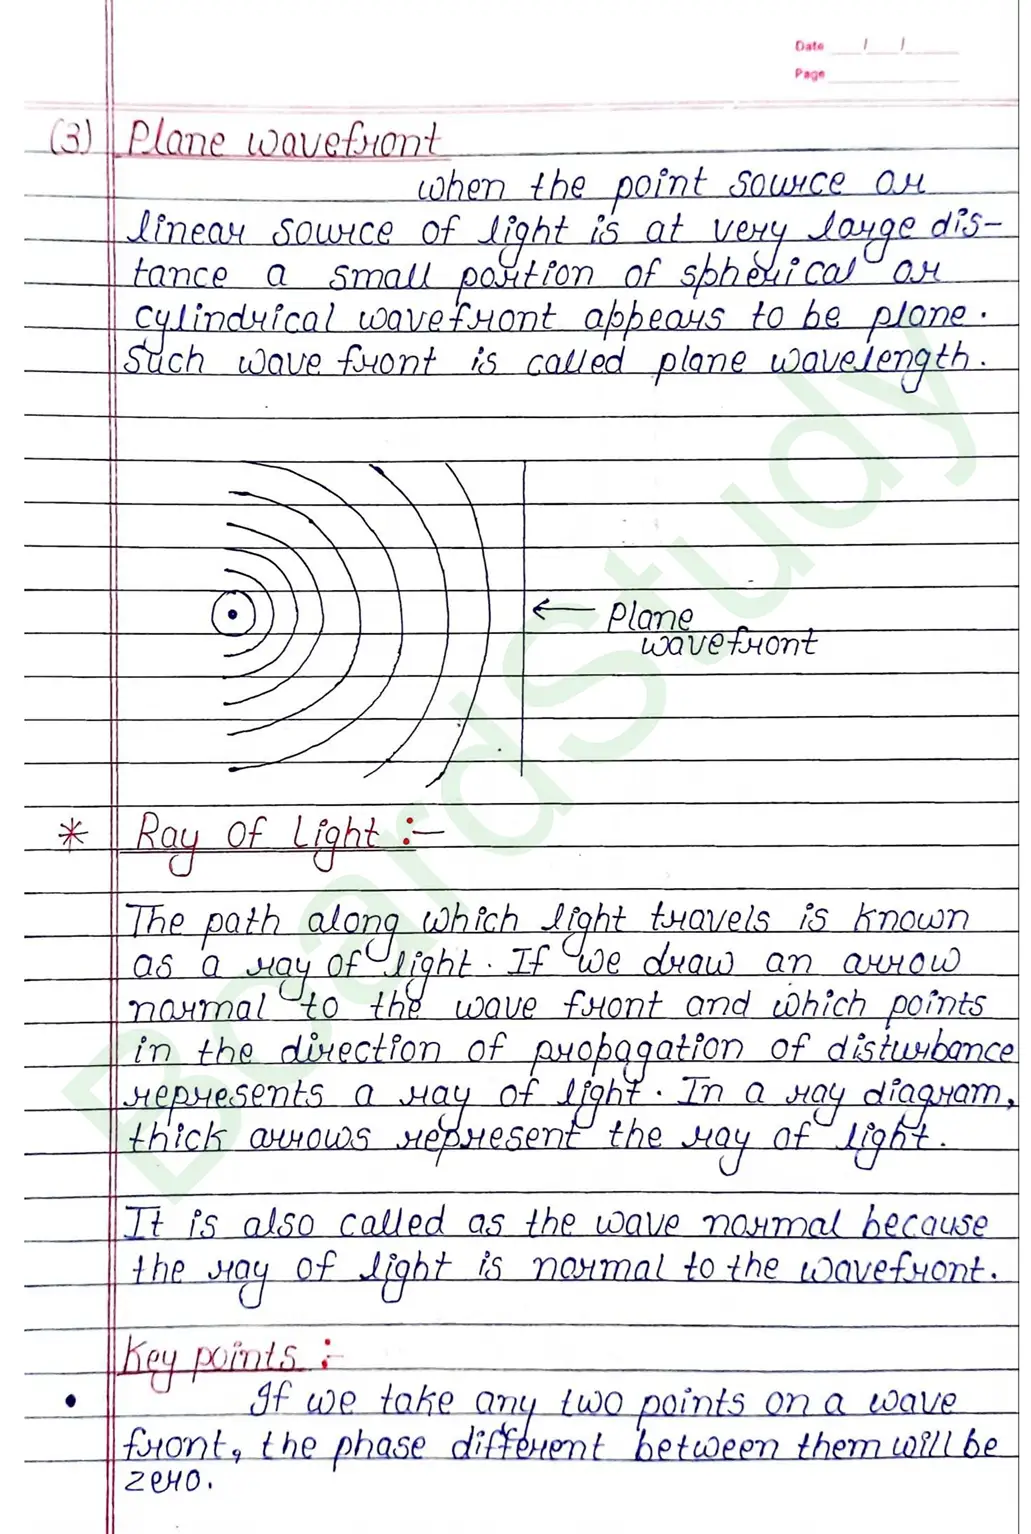 Date / /
Page
(3) Plane wavefront
when the point source or
linear source of light is at very large dis-
tance a small portion of spherical or
cylindrical wavefront appears to be plane.
Such wave front is called plane wavelength.
← Plane
wavefront
* Ray of Light :-
The path along which light travels is known
as a ray of light. If we draw an arrow
normal to the wave front and which points
in the direction of propagation of disturbance
represents a ray of light. In a ray diagram,
thick arrows represent the ray of light.
It is also called as the wave normal because
the ray of light is normal to the wavefront.
Key points :-
• If we take any two points on a wave
front, the phase different between them will be
zero.
BoardStudy